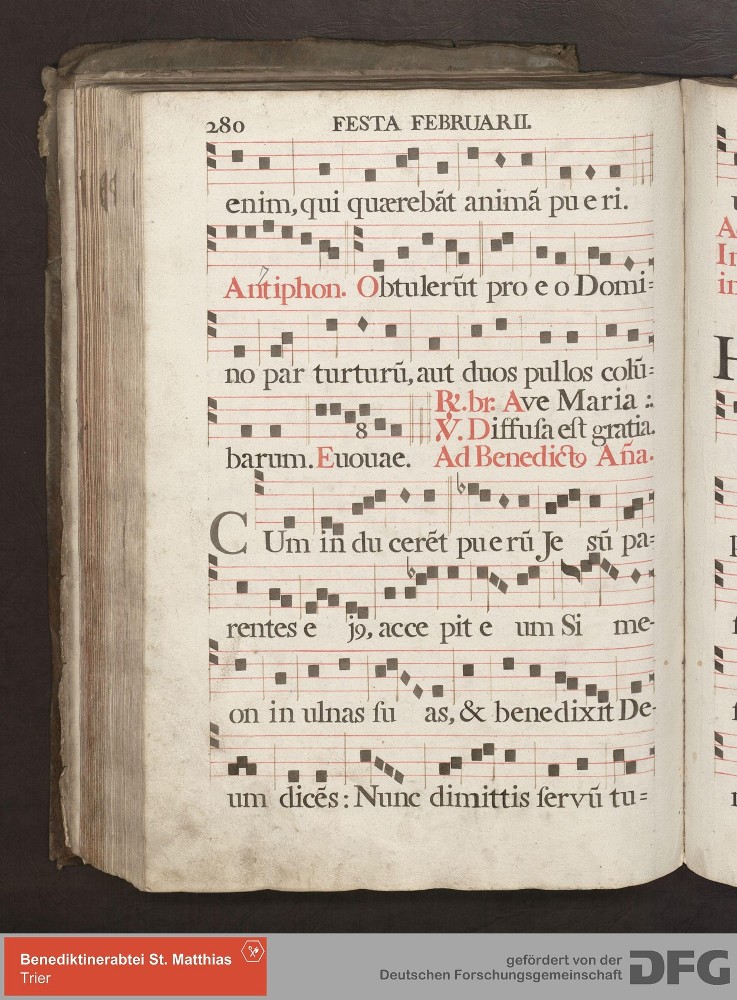 280 FESTA FEBRUARII.
enim, qui quærebāt animā pu e ri.
Antiphon. Obtulerūt pro e o Domi=
no par turturū, aut duos pullos colū=
8
℟. br. Ave Maria :.
℣. Diffuſa eſt gratia.
barum. Euouae. Ad Benedictꝰ Aña.
CUm in du cerēt pu e rū Je sū pa=
rentes e jꝰ, acce pit e um Si me-
on in ulnas ſu as, & benedixit De-
um dicēs : Nunc dimittis ſervū tu=
Benediktinerabtei St. Matthias
Trier
gefördert von der
Deutschen Forschungsgemeinschaft
DFG